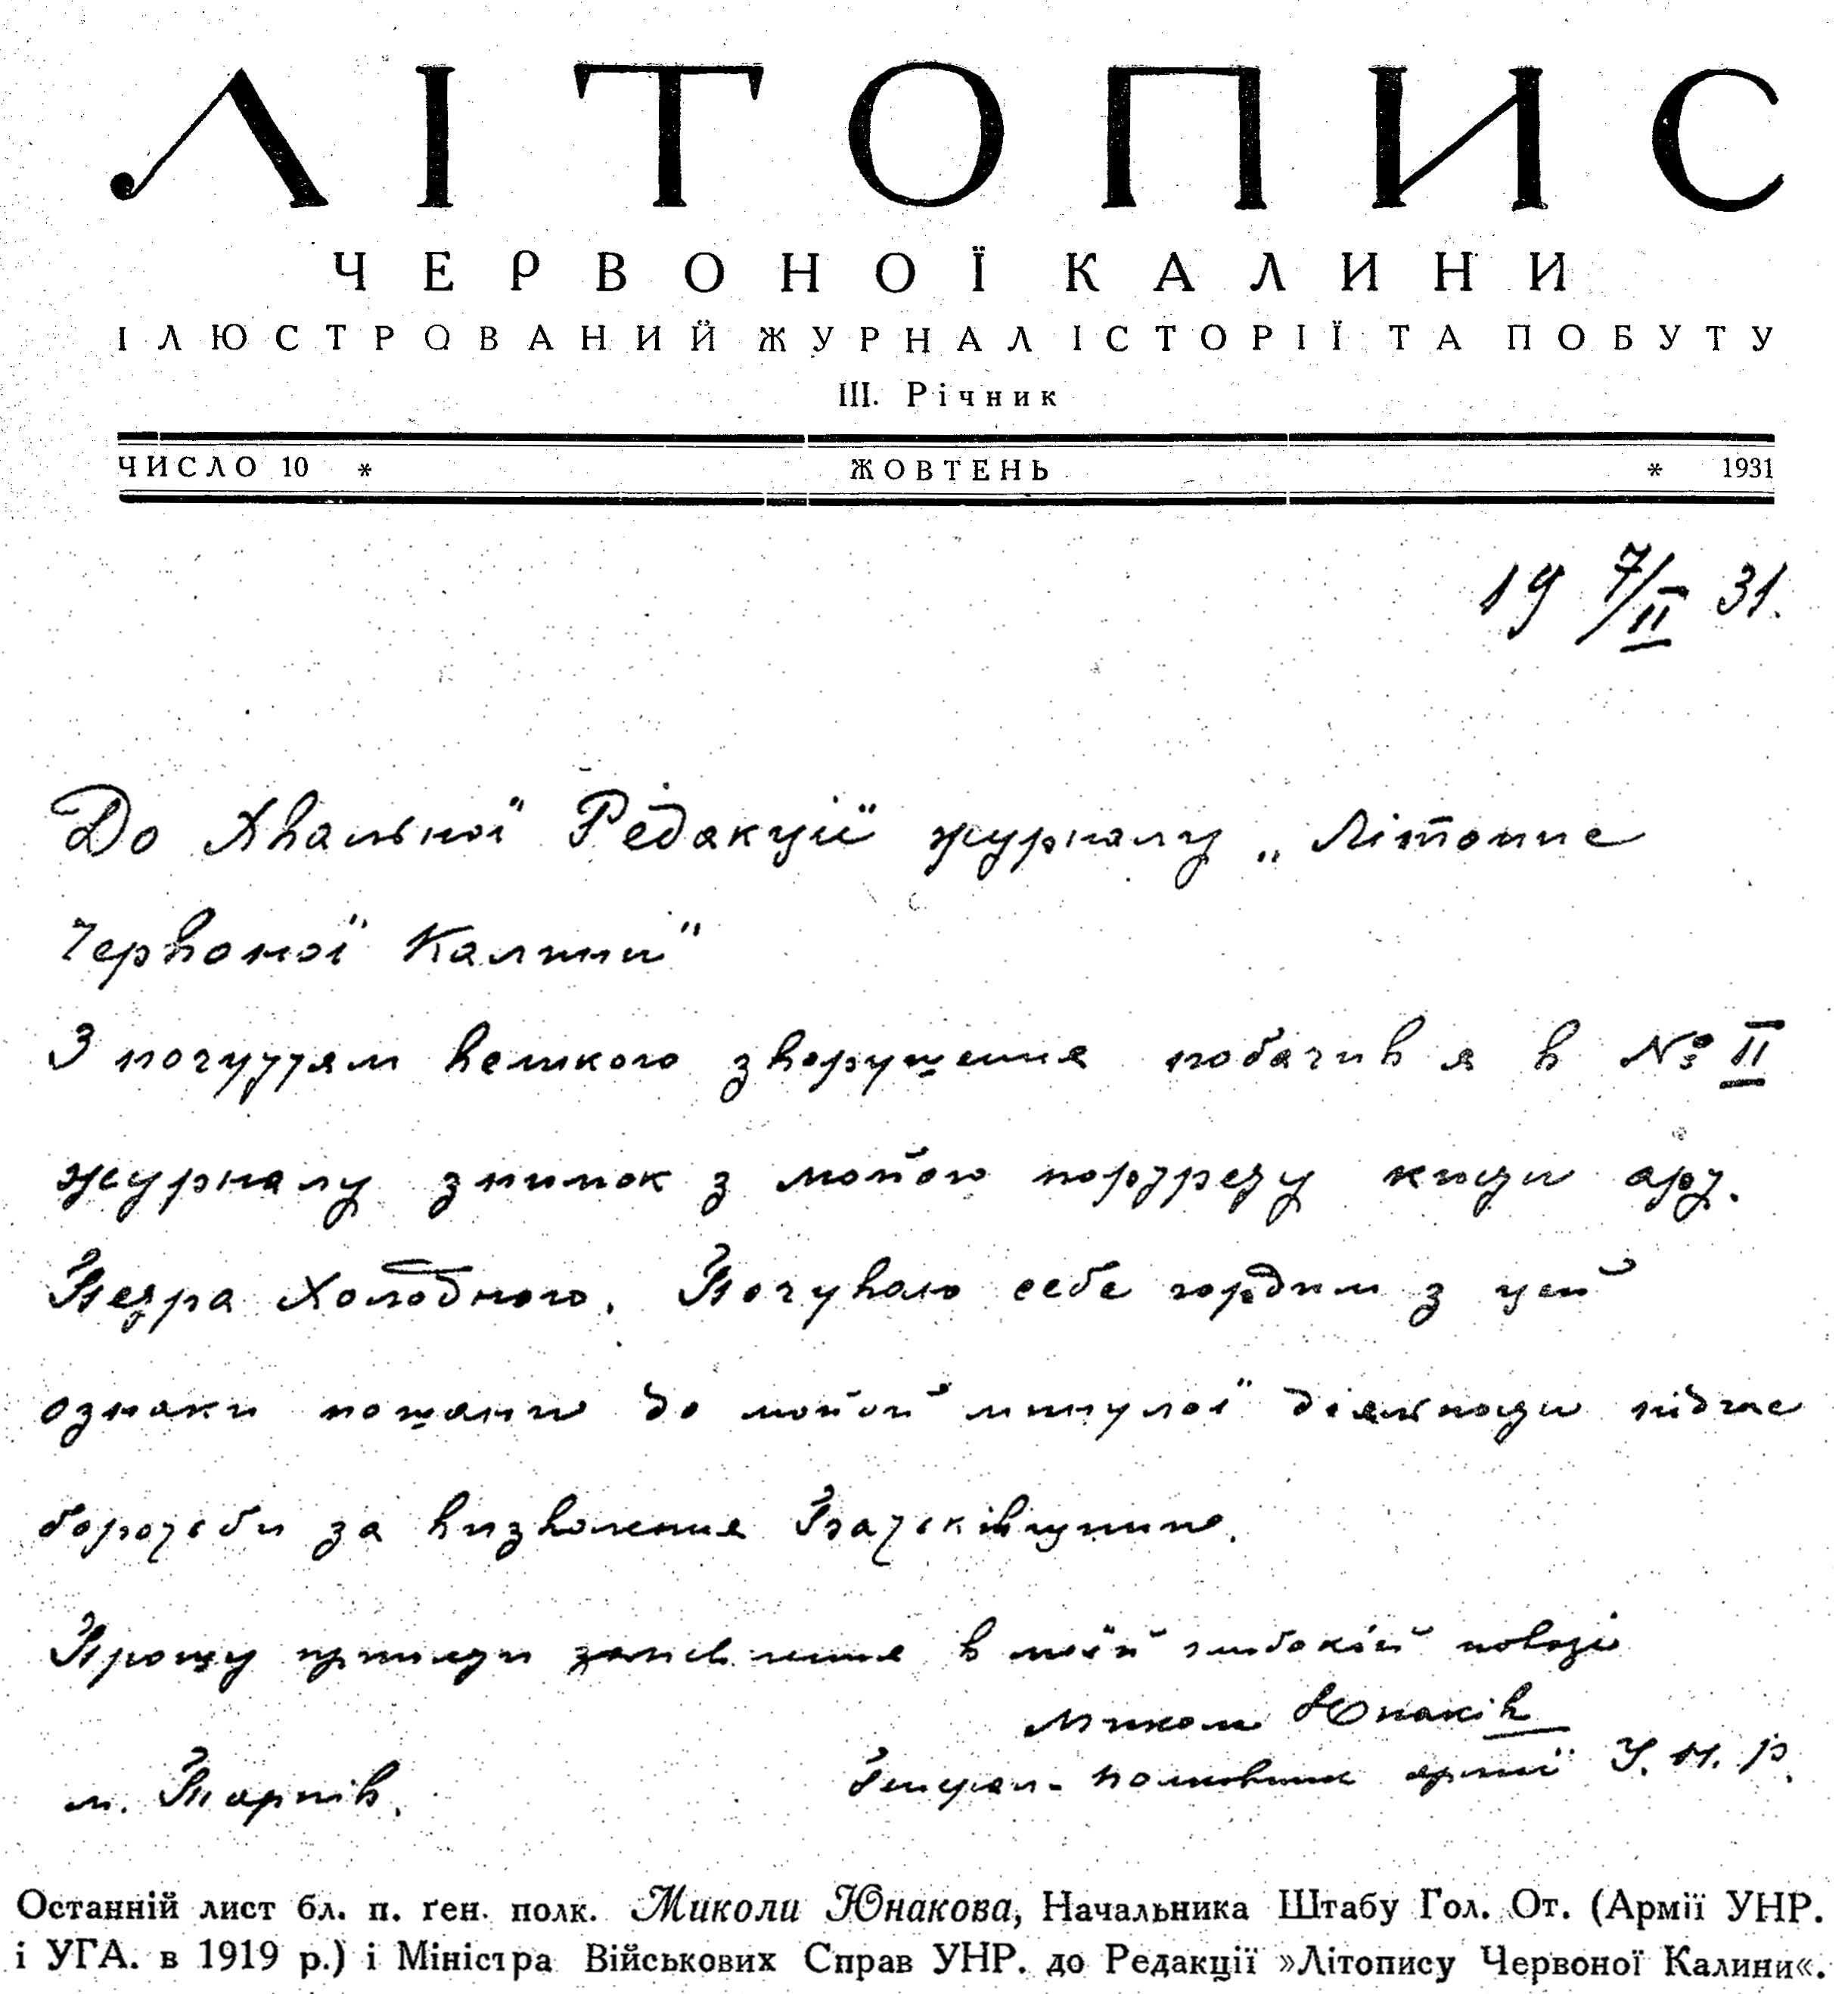 ЛІТОПИС
ЧЕРВОНОЇ КАЛИНИ
ІЛЮСТРОВАНИЙ ЖУРНАЛ ІСТОРІЇ ТА ПОБУТУ
III. Річник
ЧИСЛО 10 * ЖОВТЕНЬ * 1931
19 7/II 31.
До Хвальної Редакції журналу „Літопис
Червоної Калини"
З почуттям великого зворушення побачив я в № II
журналу знимок з мойого портрету кисти арт.
Петра Холодного. Почуваю себе гордим з цей
ознаки пошани до моєй минулої діяльности підчас
боротьби за визволення Батьківщини.
Прошу приняти запевнення в моїй глибокій повазі
Микола Юнаків
м. Тарнів. Генерал-полковник армії У.Н.Р.
Останній лист бл. п. ґен. полк. Миколи Юнакова, Начальника Штабу Гол. От. (Армії УНР.
і УГА. в 1919 р.) і Міністра Військових Справ УНР. до Редакції »Літопису Червоної Калини«.